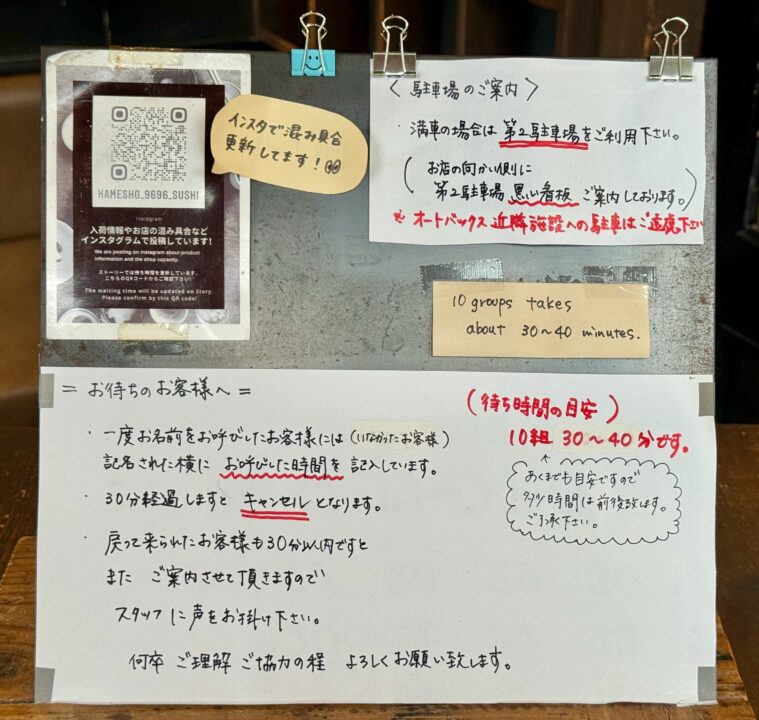 KAMESHO_9696_SUSHI
Instagram
入荷情報やお店の混み具合など
インスタグラムで投稿しています!
We are posting on Instagram about product
information and the shop capacity.
ストーリーでは待ち時間を更新しています。
こちらのQRコードからご確認下さい!
The waiting time will be updated on Story.
Please confirm by this QR code!
インスタで混み具合
更新してます!
〈 駐車場のご案内 〉
・満車の場合は 第2駐車場をご利用下さい。
(お店の向かい側に
第2駐車場 黒い看板 ご案内しております。)
※ オートバックス 近隣施設への駐車はご遠慮下さい
10 groups takes
about 30~40 minutes.
= お待ちのお客様へ =
・一度お名前をお呼びしたお客様には (いなかったお客様)
記名された横に お呼びした時間を 記入しています。
・30分経過しますと キャンセル となります。
・戻って来られたお客様も30分以内ですと
また ご案内させて頂きますので
スタッフに声をお掛け下さい。
何卒 ご理解 ご協力の程 よろしくお願い致します。
(待ち時間の目安)
10組 30~40分です。
↑
あくまでも目安ですので
多少時間は前後致します。
ご了承下さい。